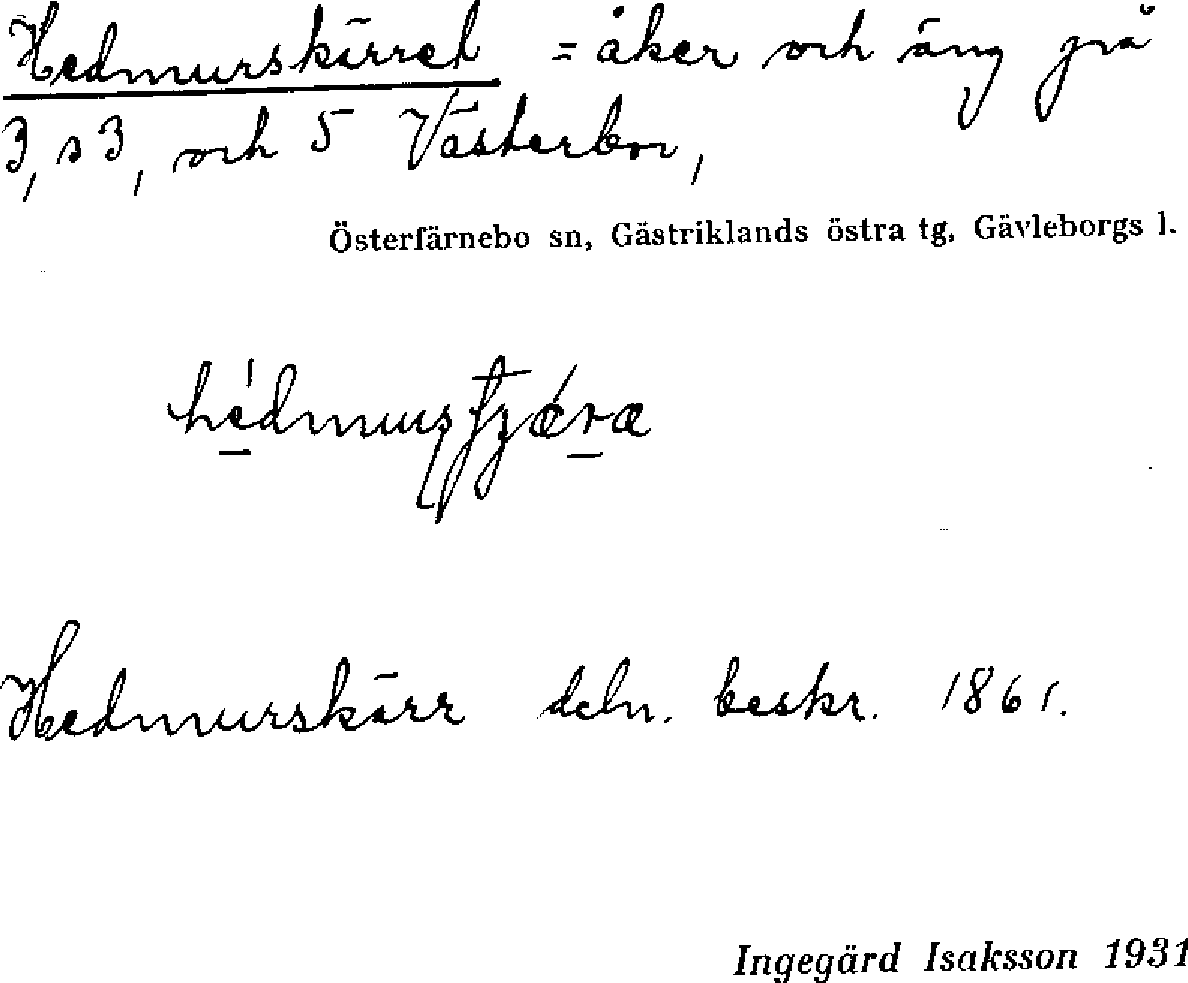 Hedmurskärret = åker och äng på
3, s 3, och 5 Västerbor,
Österfärnebo sn, Gästriklands östra tg, Gävleborgs l.
Hedmurskärr deln. beskr. 1861.
Ingegärd Isaksson 1931